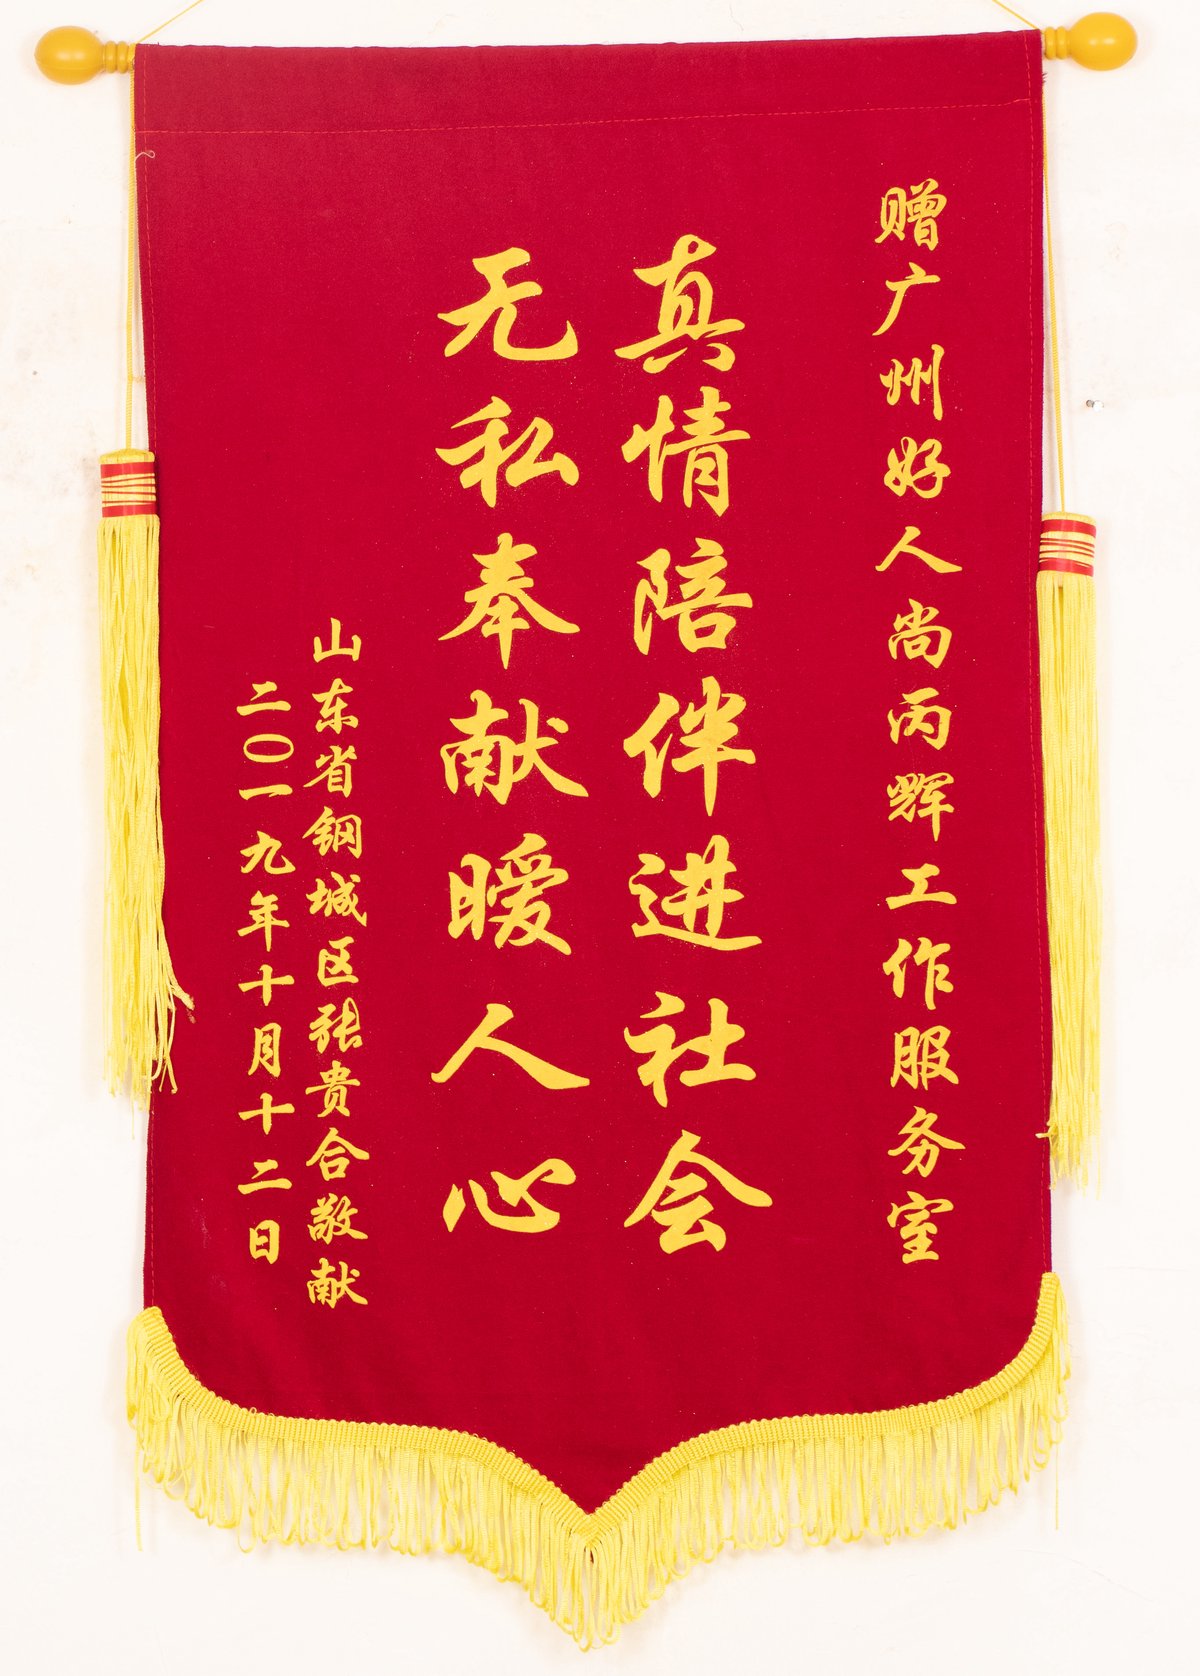 赠广州好人尚丙辉工作服务室
真情陪伴进社会
无私奉献暖人心
山东省钢城区张贵合敬献
二〇一九年十月十二日